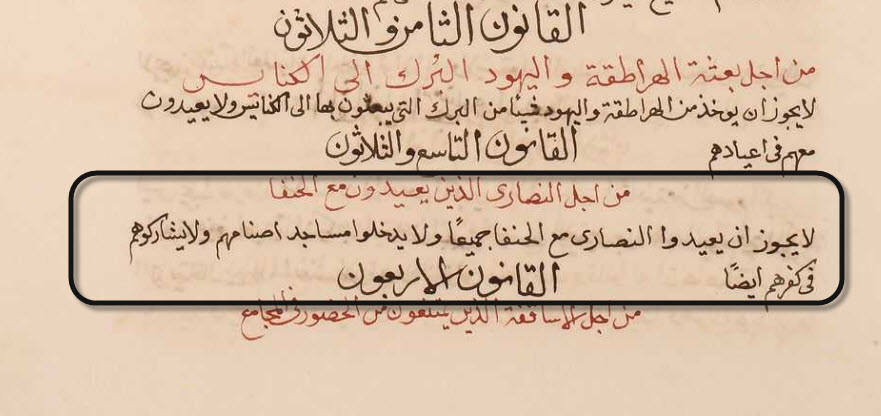 القانون الثامن والثلاثون
من اجل بعثة الهراطقة واليهود البُرك الى الكنايس
لايجوز ان يوخذ من الهراطقة واليهود شيئا من البرك التى يبعثون بها الى الكنايس ولا يعيدون
معهم فى اعيادهم
القانون التاسع والثلاثون
من اجل النصارى الذين يعيدون مع الحنفا
لايجوز ان يعيدوا النصارى مع الحنفا جميعًا ولا يدخلوا مساجد اصنامهم ولا يشاركوهم
فى كفرهم ايضًا
القانون الاربعون
من اجل الاساقفة الذين يمتنعون من الحضور فى المجامع